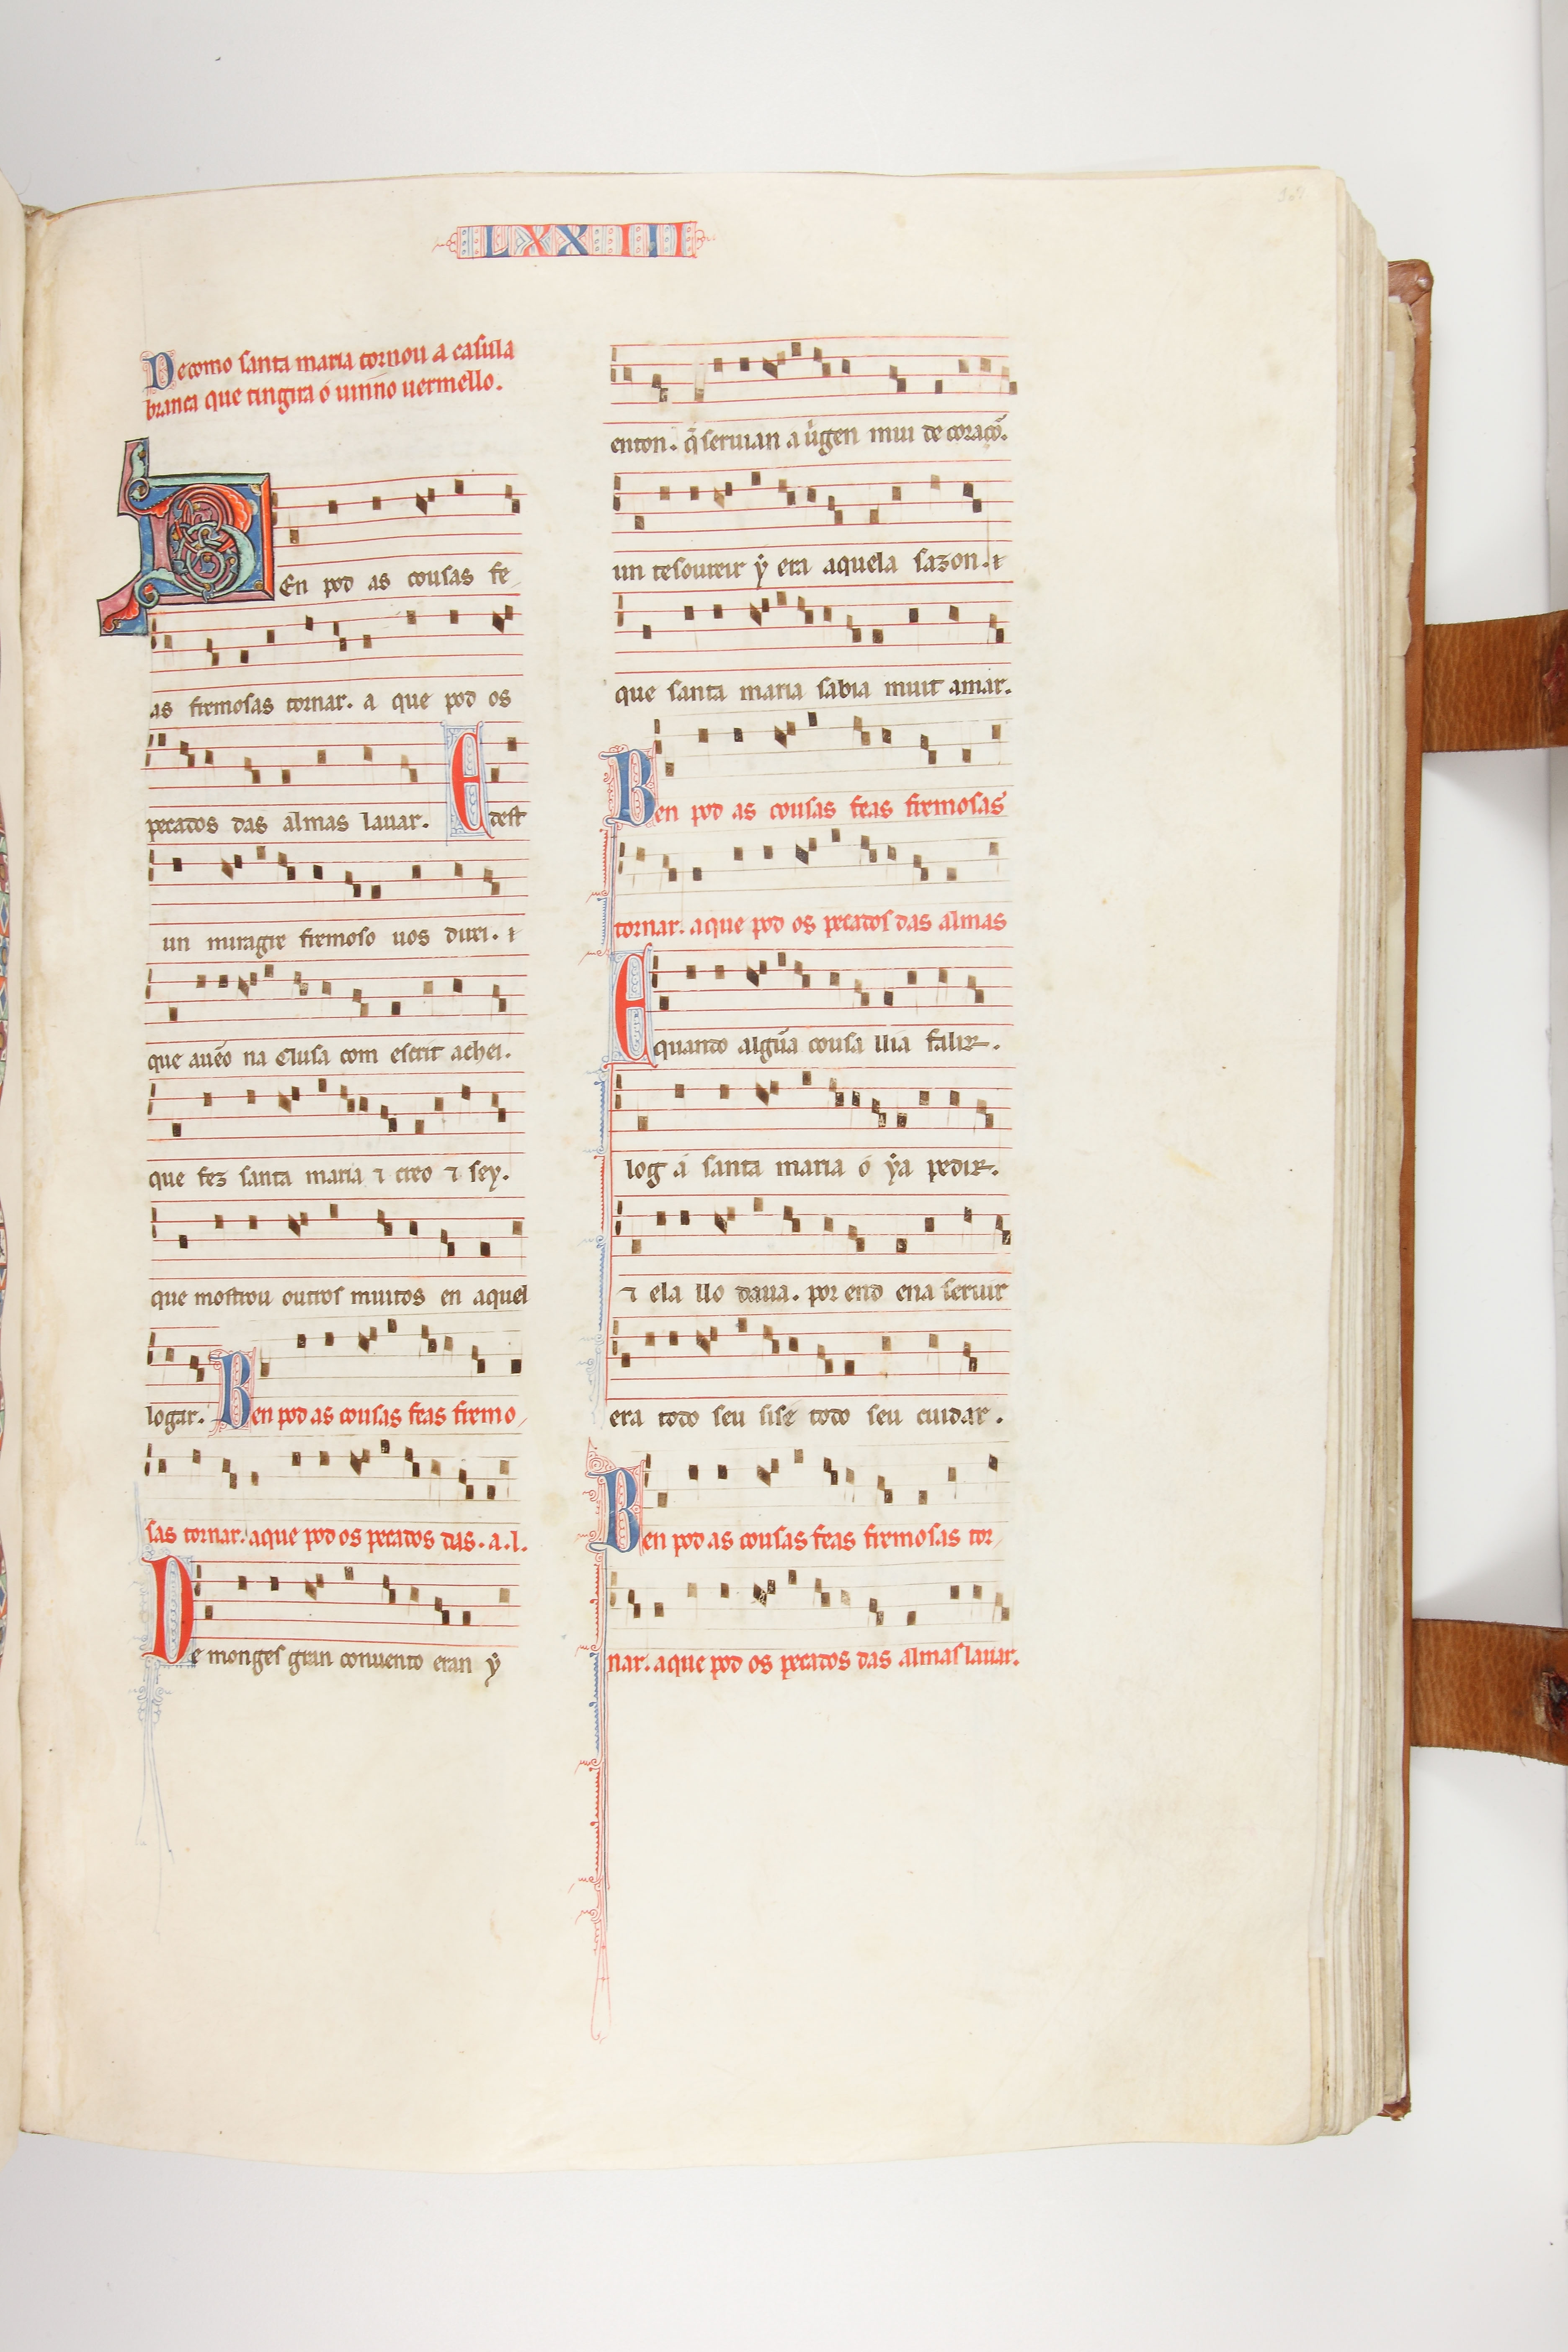 LXXIII
De como santa maria tornou a casula
branca que tingira o uinno uermello.
BEn pod as cousas fe
as fremosas tornar. a que pod os
pecados das almas lauar. E dest
un miragre fremoso uos direi. ⁊
que auẽo na Clusa com escrit achei.
que fez santa maria ⁊ creo ⁊ sey.
que mostrou outros muitos en aquel
logar. Ben pod as cousas feas fremo
sas tornar. a que pod os pecados das. a. l.
De monges gran conuento eran ẏ
enton. q̃ seruian a uirgen mui de coraçõ.
un tesoureir ẏ era aquela sazon. ⁊
que santa maria sabia muit amar.
Ben pod as cousas feas fremosas
tornar. a que pod os pecados das almas
E quanto algũa cousa llia falir.
log á santa maria o ẏa pedir.
⁊ ela llo daua. por end ena seruir
era todo seu sise todo seu cuidar.
Ben pod as cousas feas fremosas tor
nar. a que pod os pecados das almas lauar.